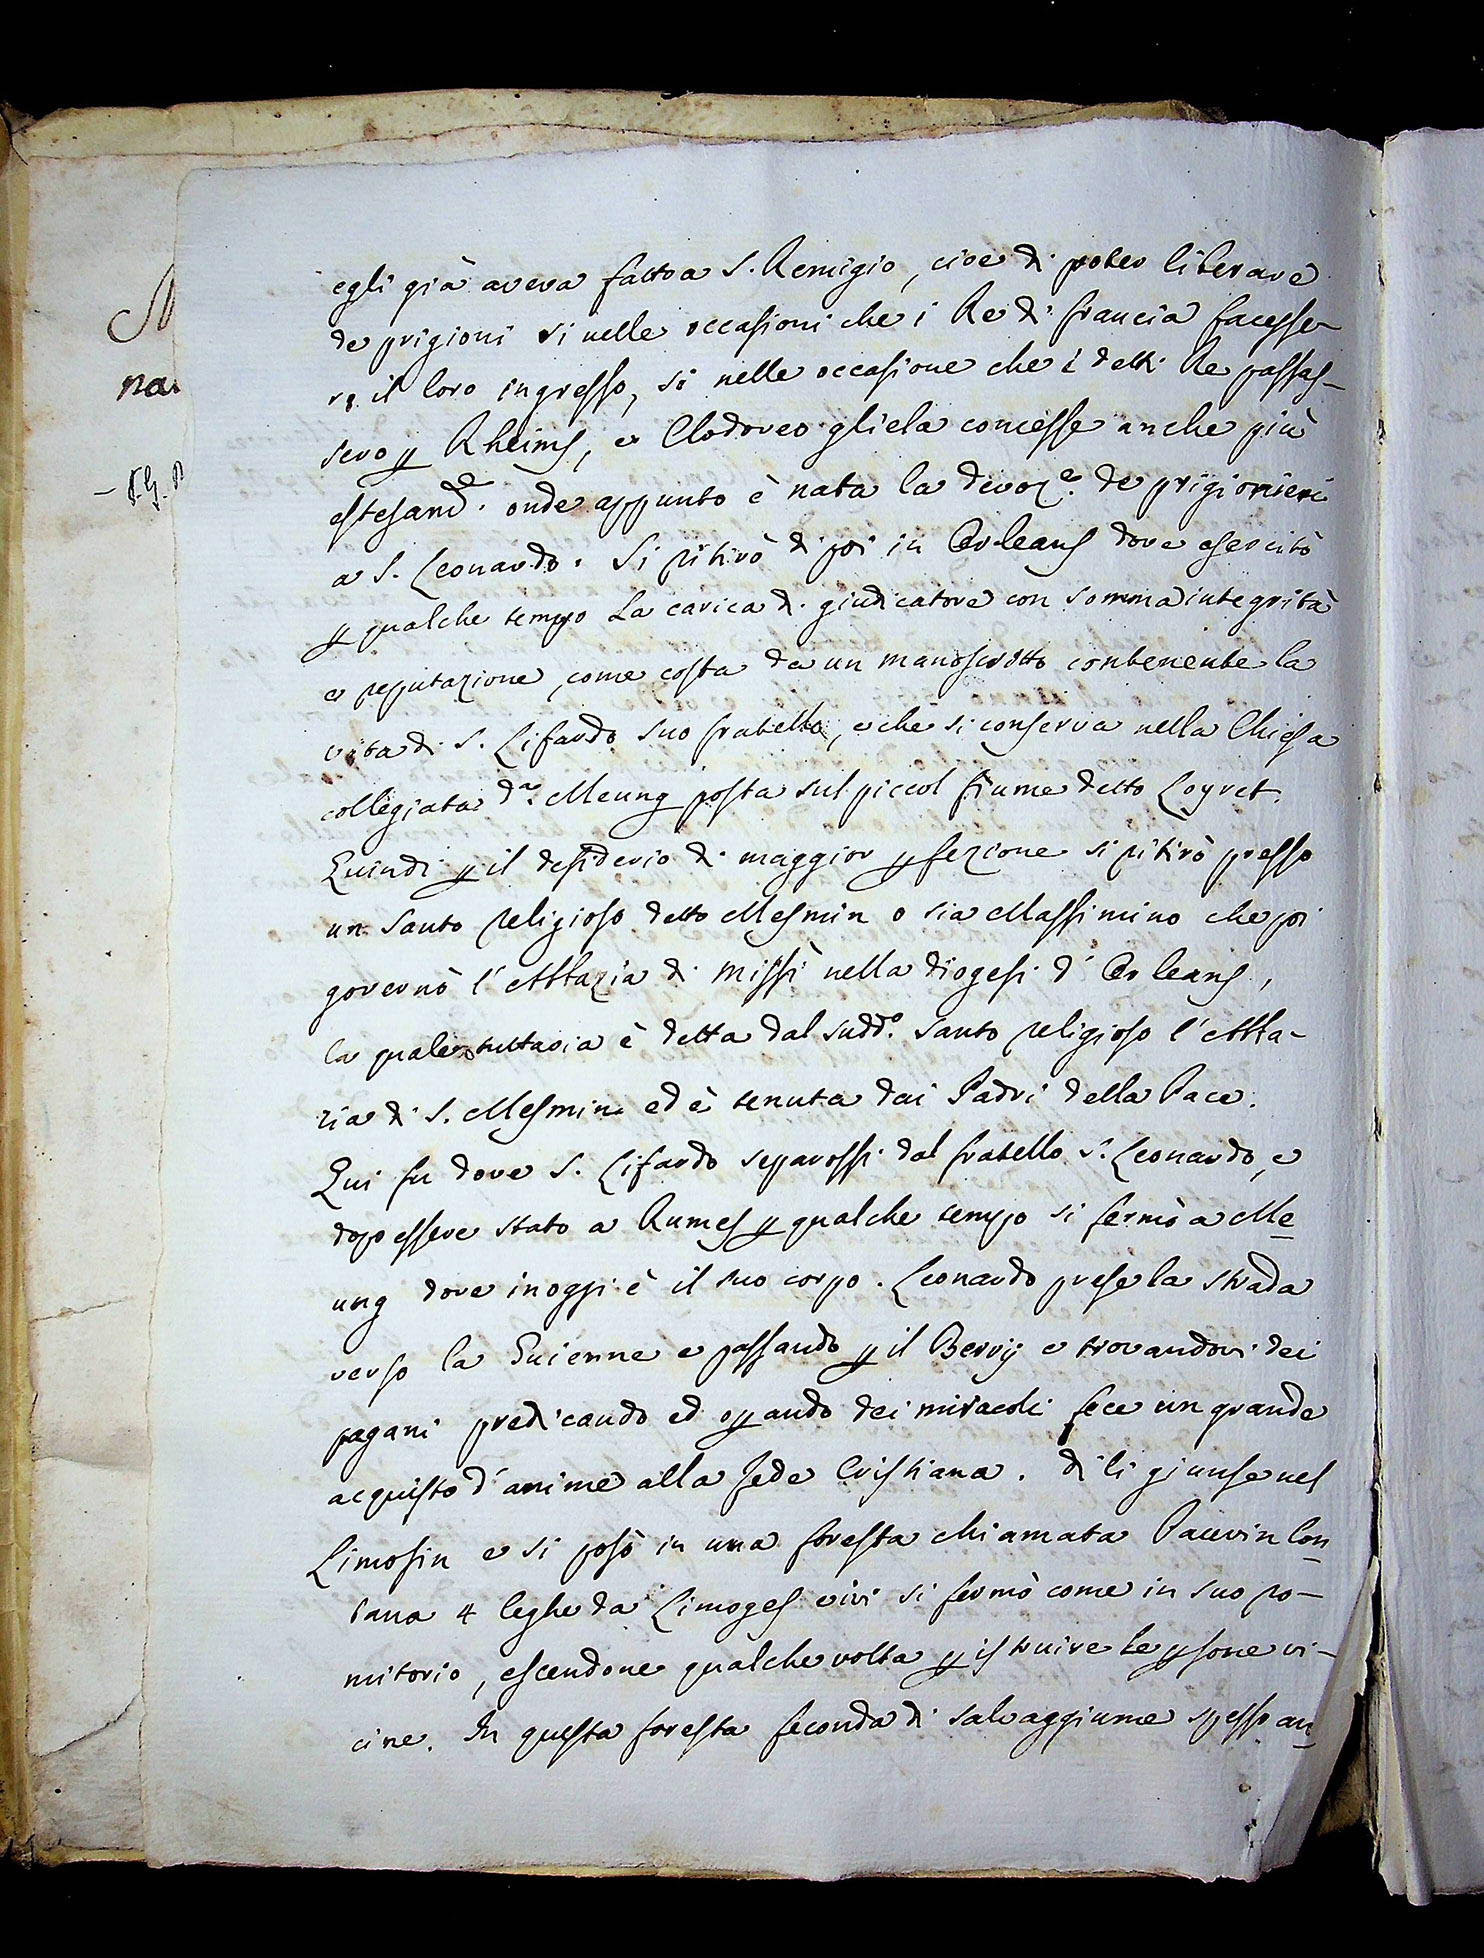 egli già aveva fatto a S. Remigio, cioe di poter liberare
de prigioni si nelle occasioni che i Re di francia facesse-
ro il loro ingresso, si nelle occasione che i detti Re passas-
sero p Rheims, e Clodoveo gliela concesse anche più
estesam.e onde appunto è nata la divoz.e de prigionieri
a S. Leonardo. Si ritirò di poi in Orleans dove esercitò
p qualche tempo la carica di giudicatore con somma integrità
e reputazione, come costa da un manoscritto contenente la
vita di S. Lifardo suo fratello, e che si conserva nella Chiesa
collegiata di Meung posta sul piccol fiume detto Loyret.
Quindi p il desiderio di maggior pfezione si ritirò presso
un Santo religioso detto Mesmin o sia Massimino che poi
governò l'Abbazia di Missì nella diogesi d'Orleans,
la quale tuttavia è detta dal sudd.o santo religioso l'Abba-
zia di S. Mesmin ed è tenuta dai Padri della Pace.
Qui fu dove S. Lifardo separossi dal fratello S. Leonardo, e
dopo essere stato a Rumes p qualche tempo si fermò a Me
ung dove in oggi è il suo corpo. Leonardo prese la strada
verso la Guienne e passando p il Berry e trovandovi dei
pagani predicando ed opando dei miracoli fece un grande
acquisto d'anime alla fede Cristiana. di li giunse nel
Limosin e si posò in una foresta chiamata Pauvin lon
tana 4 leghe da Limoges e ivi si fermò come in suo ro-
mitorio, escendone qualche volta p istruire le psone vi-
cine. In questa foresta feconda di salvaggiume spesso an
na